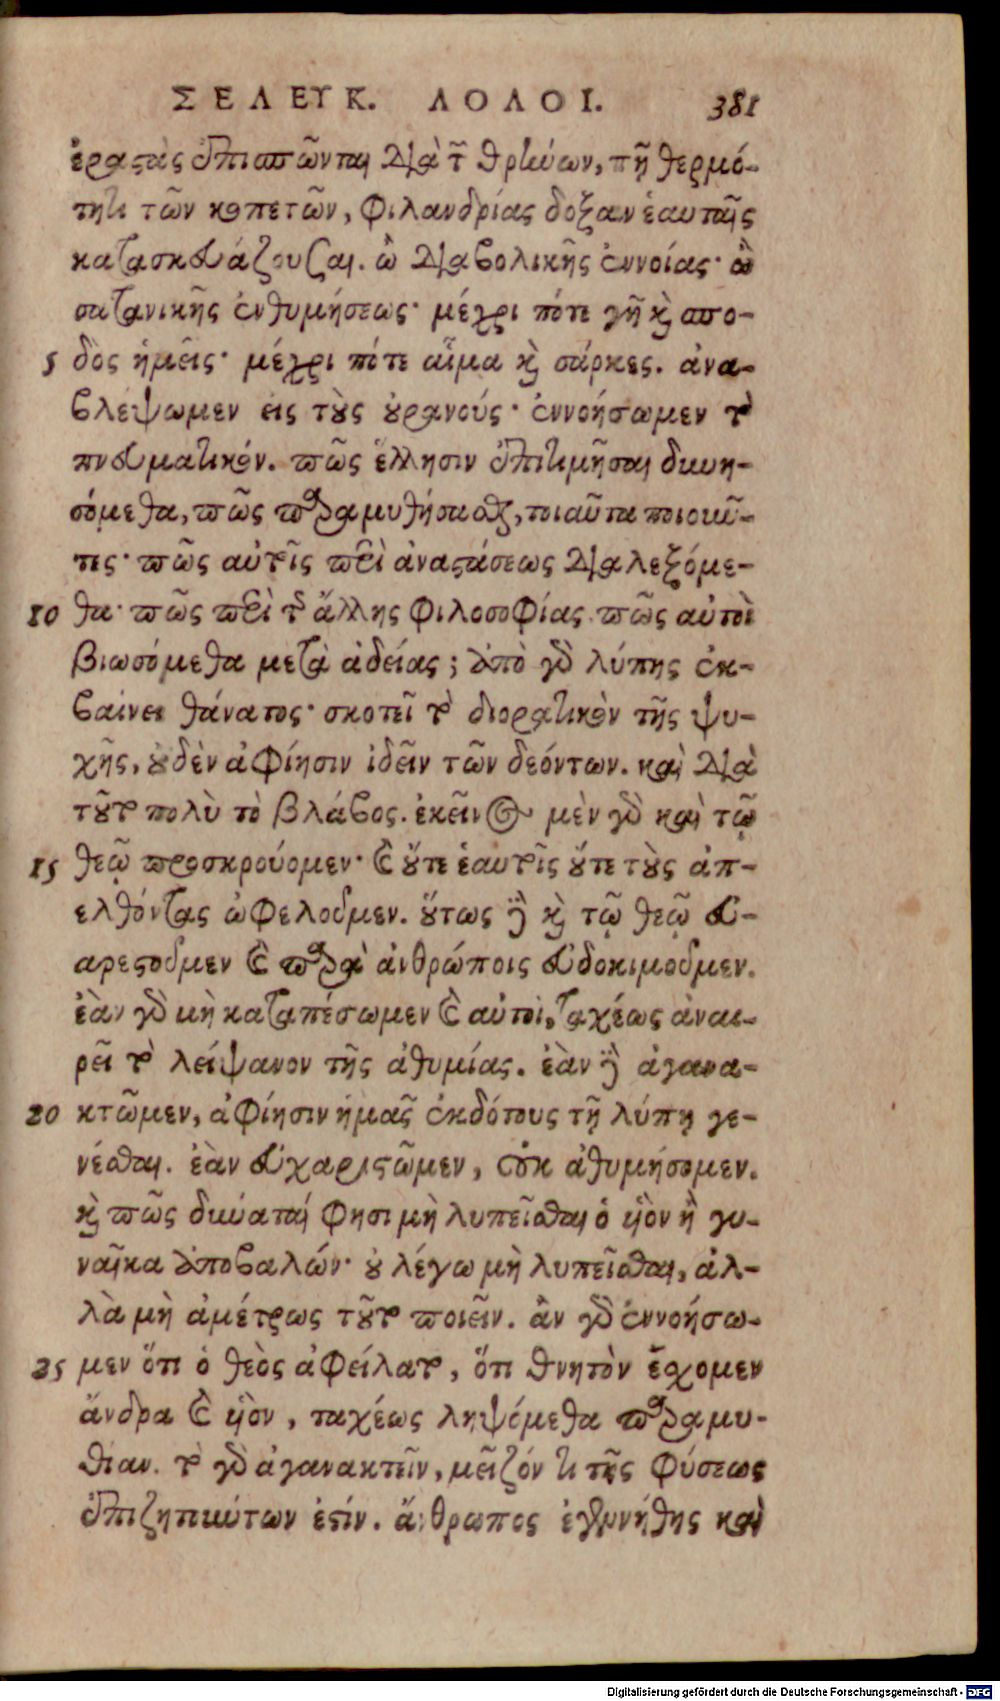 ΣΕΛΕΥΚ. ΛΟΛΟΙ. 381
ἐραστὰς ἐπισπῶνται διὰ τῶν θρήνων, τῇ θερμό-
τητι τῶν κοπετῶν, φιλανδρίας δοξαν ἑαυταῖς
κατασκευάζουσαι. ὢ διαβολικῆς ἐννοίας· ὢ
σατανικῆς ἐνθυμήσεως· μέχρι πότε γῆ καὶ σπο-
5 δὸς ἡμεῖς· μέχρι πότε αἷμα καὶ σάρκες. ἀνα-
βλέψωμεν εἰς τοὺς οὐρανούς· ἐννοήσωμεν τὸ
πνευματικόν. πῶς ἕλλησιν ἐπιτιμῆσαι δυνη-
σόμεθα, πῶς παραμυθήσασθαι, τοιαῦτα ποιοῦν-
τες· πῶς αὐτοῖς περὶ ἀναστάσεως διαλεξόμε-
10 θα· πῶς περὶ τῆς ἄλλης φιλοσοφίας πῶς αὐτοὶ
βιωσόμεθα μετὰ ἀδείας; ἀπὸ γὰρ λύπης ἐκ-
βαίνει θάνατος· σκοτεῖ τὸ διορατικὸν τῆς ψυ-
χῆς, οὐδὲν ἀφίησιν ἰδεῖν τῶν δεόντων. καὶ διὰ
τοῦτο πολὺ τὸ βλάβος. ἐκείνως μὲν γὰρ καὶ τῷ
15 θεῷ προσκρούομεν· καὶ οὔτε ἑαυτοῖς οὔτε τοὺς ἀπ-
ελθόντας ὠφελοῦμεν. οὕτως δὲ καὶ τῷ θεῷ εὐ-
αρεστοῦμεν καὶ παρὰ ἀνθρώποις εὐδοκιμοῦμεν.
ἐὰν γὰρ μὴ καταπέσωμεν καὶ αὐτοὶ, ταχέως ἀναι-
ρεῖ τὸ λείψανον τῆς ἀθυμίας. ἐὰν δὲ ἀγανα-
20 κτῶμεν, ἀφίησιν ἡμᾶς ἐκδότους τῇ λύπῃ γε-
νέσθαι. ἐὰν εὐχαριστῶμεν, οὐκ ἀθυμήσομεν.
καὶ πῶς δυνατόν φησι μὴ λυπεῖσθαι ὁ υἱὸν ἢ γυ-
ναῖκα ἀποβαλών· οὐ λέγω μὴ λυπεῖσθαι, ἀλ-
λὰ μὴ ἀμέτρως τοῦτο ποιεῖν. ἂν γὰρ ἐννοήσω-
25 μεν ὅτι ὁ θεὸς ἀφείλατο, ὅτι θνητὸν ἔχομεν
ἄνδρα καὶ υἱὸν, ταχέως ληψόμεθα παραμυ-
θίαν. τὸ γὰρ ἀγανακτεῖν, μεῖζόν τι τῆς φύσεως
ἐπιζητούντων ἐστίν. ἄνθρωπος ἐγεννήθης καὶ
Digitalisierung gefördert durch die Deutsche Forschungsgemeinschaft - DFG